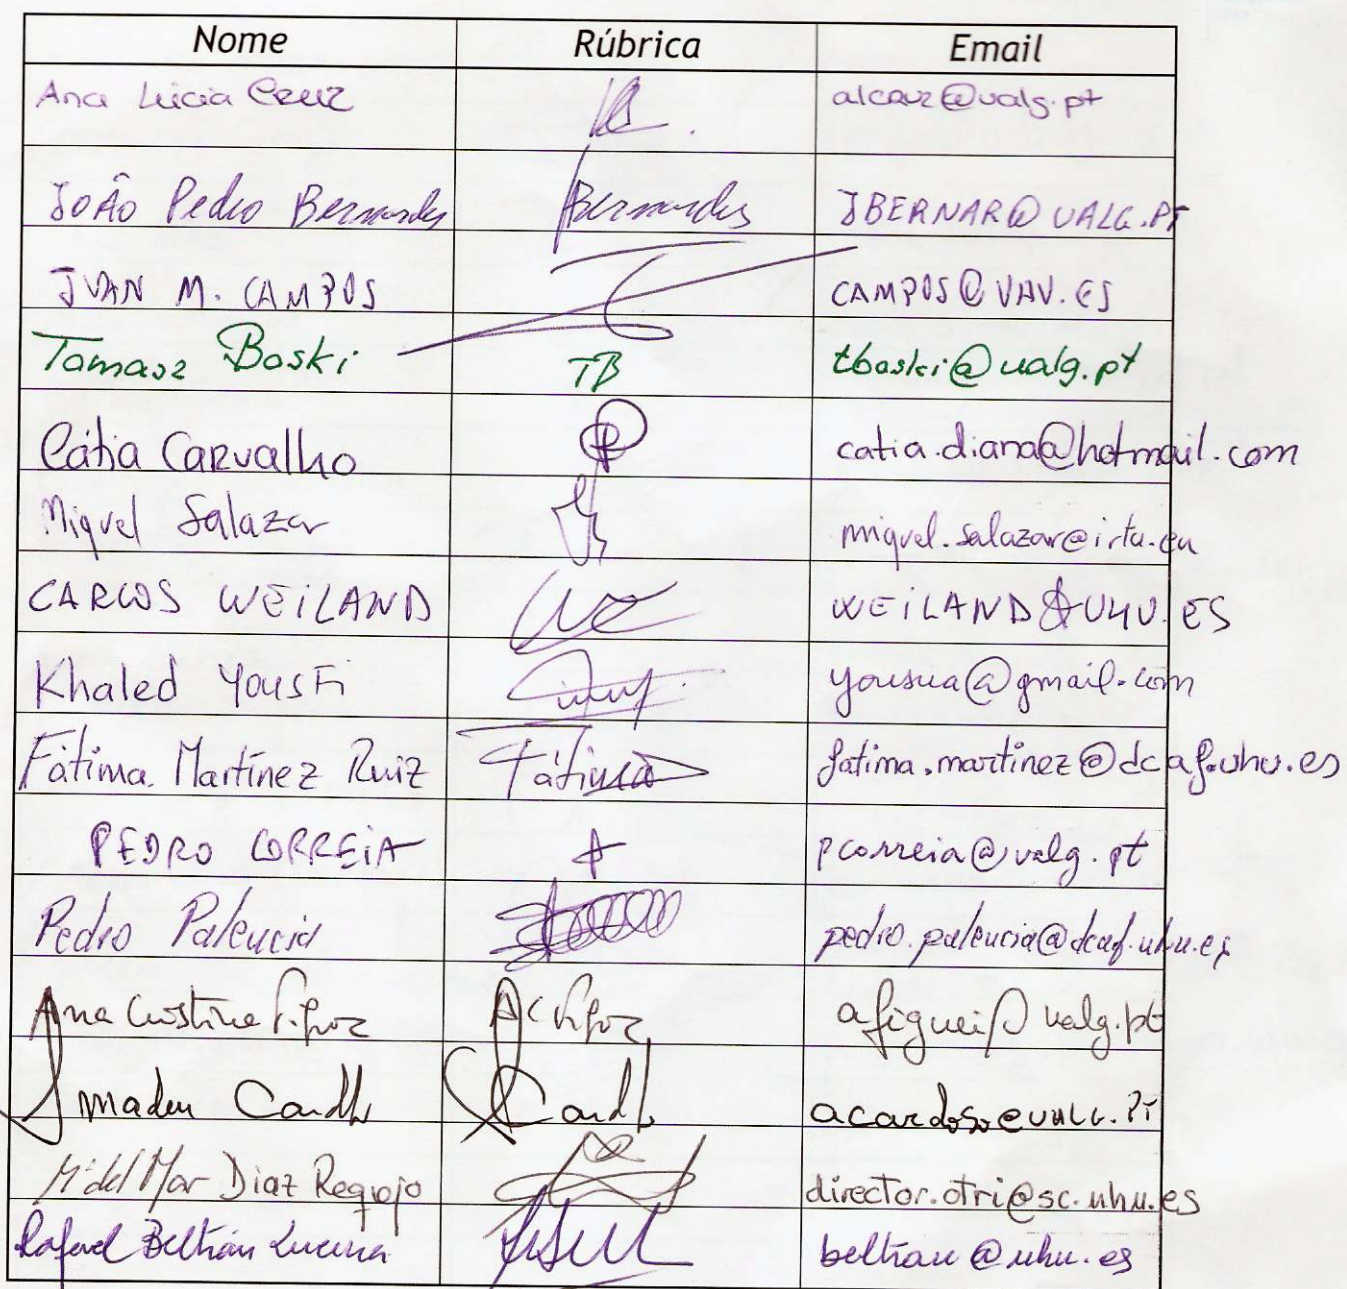 Nome Rúbrica Email
Ana Lúcia Cruz alcruz@ualg.pt
João Pedro Bernardes Bernardes JBERNAR@UALG.PT
JUAN M. CAMPOS CAMPOS@UHU.ES
Tomasz Boski TB tboski@ualg.pt
Cátia Carvalho catia.diana@hotmail.com
Miguel Salazar miguel.salazar@irta.eu
CARLOS WEILAND WEILAND@UHU.ES
Khaled Yousfi yousua@gmail.com
Fátima Martínez Ruiz Fátima fatima.martinez@dcaf.uhu.es
PEDRO CORREIA pcorreia@ualg.pt
Pedro Palencia pedro.palencia@dcaf.uhu.es
Ana Cristina afiguei@ualg.pt
acardoso@UALG.PT
Mª del Mar Diaz Requejo director.otri@sc.uhu.es
Rafael Beltrán Lucena beltran@uhu.es